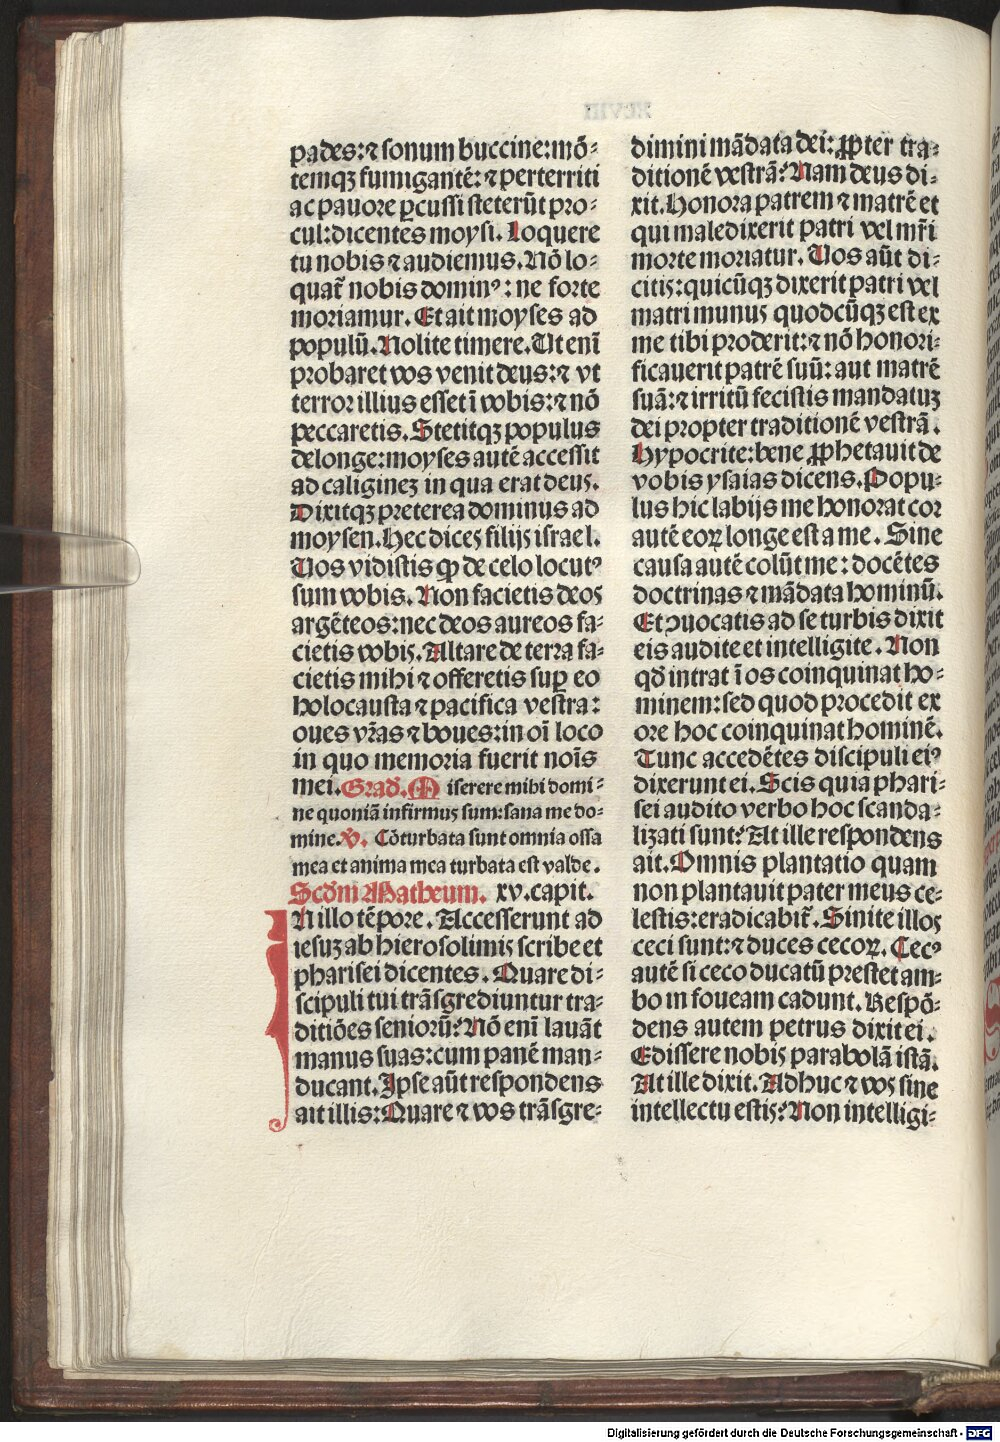 pades:⁊ sonum buccine:mō-
temqꝫ fumigantē: ⁊ perterriti
ac pauore ꝑcussi steterūt pro-
cul:dicentes moysi. Loquere
tu nobis ⁊ audiemus. Nō lo-
quat᷑ nobis dominꝰ: ne forte
moriamur. Et ait moyses ad
populū. Nolite timere. Ut enī
probaret vos venit deus:⁊ vt
terror illius esset ī vobis:⁊ nō
peccaretis. Stetitqꝫ populus
delonge:moyses autē accessit
ad caligineꝫ in qua erat deus.
Dixitqꝫ preterea dominus ad
moysen. Hec dices filijs israel.
Uos vidistis ꝙ de celo locutꝰ
sum vobis. Non facietis deos
argēteos:nec deos aureos fa-
cietis vobis. Altare de terra fa-
cietis mihi ⁊ offeretis suꝑ eo
holocausta ⁊ pacifica vestra:
oues vr̄as ⁊ boues:in oī loco
in quo memoria fuerit noīs
mei. Grad̄. Miserere mihi domi-
ne quoniā infirmus sum:sana me do-
mine. v̄. Cōturbata sunt omnia ossa
mea et anima mea turbata est valde.
Scd̄m Matheum. xv. capit.
In illo tēpore. Accesserunt ad
iesuꝫ ab hierosolimis scribe et
pharisei dicentes. Quare di-
scipuli tui trāsgrediuntur tra-
ditiōes seniorū? Nō enī lauāt
manus suas:cum panē man-
ducant. Ipse aūt respondens
ait illis: Quare ⁊ vos trāsgre-
dimini mādata dei: ꝓpter tra-
ditionē vestrā? Nam deus di-
xit. Honora patrem ⁊ matrē et
qui maledixerit patri vel mr̄i
morte moriatur. Uos aūt di-
citis:quicūqꝫ dixerit patri vel
matri munus quodcūqꝫ est ex
me tibi proderit:⁊ nō honori-
ficauerit patrē suū: aut matrē
suā:⁊ irritū fecistis mandatuꝫ
dei propter traditionē vestrā.
Hypocrite:bene ꝓphetauit de
vobis ysaias dicens. Popu-
lus hic labijs me honorat cor
autē eoꝝ longe est a me. Sine
causa autē colūt me: docētes
doctrinas ⁊ mādata hominū.
Et ꝯuocatis ad se turbis dixit
eis audite et intelligite. Non
qd̄ intrat ī os coinquinat ho-
minem:sed quod procedit ex
ore hoc coinquinat hominē.
Tunc accedētes discipuli eiꝰ
dixerunt ei. Scis quia phari-
sei audito verbo hoc scanda-
lizati sunt? At ille respondens
ait. Omnis plantatio quam
non plantauit pater meus ce-
lestis:eradicabit᷑. Sinite illos
ceci sunt:⁊ duces cecoꝝ. Cecꝰ
autē si ceco ducatū prestet am-
bo in foueam cadunt. Respō-
dens autem petrus dixit ei.
Edissere nobis parabolā istā.
At ille dixit. Adhuc ⁊ vos sine
intellectu estis? Non intelligi-
Digitalisierung gefördert durch die Deutsche Forschungsgemeinschaft - DFG